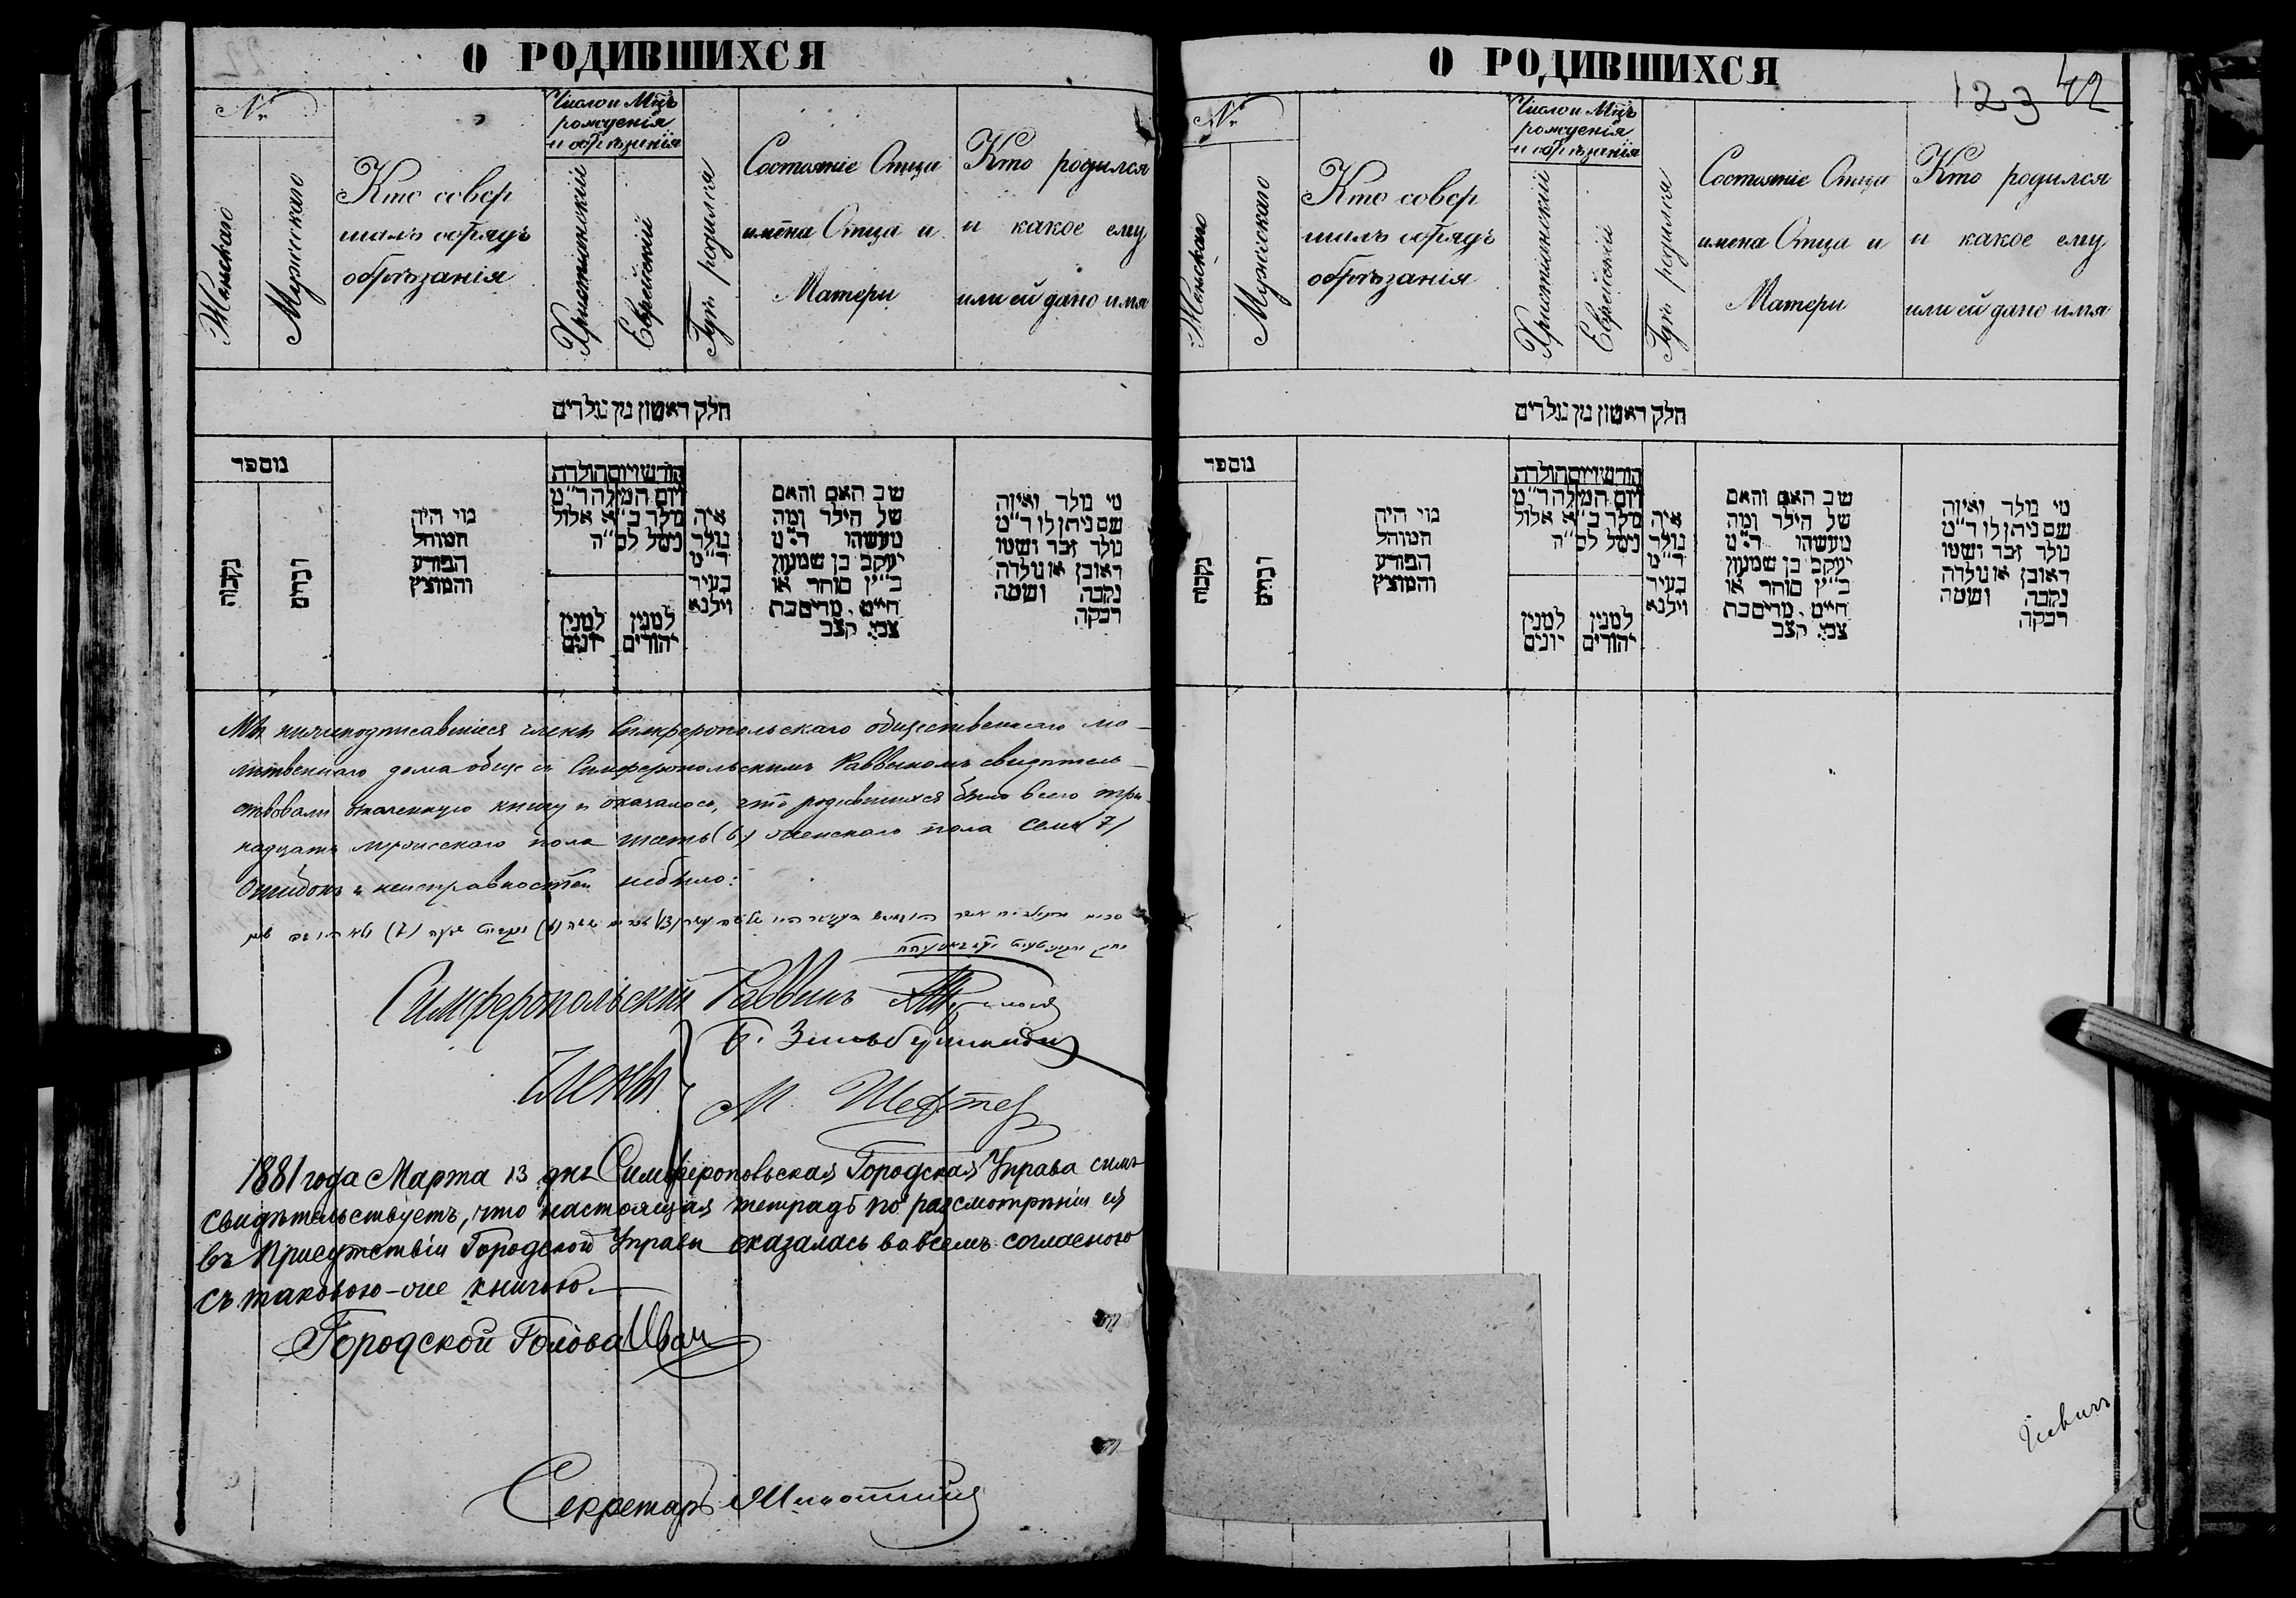 О РОДИВШИХСЯ
№
Женскаго
Мужескаго
Кто совер
шалъ обрядъ
обрѣзанія
Число и Мѣцъ
рожденія
и обрѣзанія
Христіанскій
Еврейскій
Гдѣ родился
Состояніе Отца
имена Отца и
Матери
Кто родился
и какое ему
или ей дано имя
חלק ראשון מן נולדים
מספר
נקבות
זכרים
מי היה
המוהל
הפורע
והמוצץ
חודש ויום הולדת
ויום המילה ד״מ
נולד ב״א אלול
נימל לס״ה
למנין
יונים
למנין
יהודים
איה
נולד
ד״מ
בעיר
ווילנא
שב האם והאם
של הילד ומה
מעשהו ד״מ
יעקב בן שמעון
כ״ץ סוחר או
חייט. מרים בת
צבי קצב
מי נולד ואיזה
שם ניתן לו ד״מ
נולד זכר ושמו
ראובן או נולדה
נקבה ושמה
רבקה
Мы нижеподписавшіеся члены Симферопольскаго общественнаго мо-
литвеннаго дома обще съ Симферопольскимъ Раввиномъ свидѣтель-
ствовали книгу и оказалось, что родившихся было всего три-
надцать мужескаго пола шесть (6) женскаго пола семь (7)
Ошибокъ и неисправностей небыло:
Симферопольскій Раввинъ
Члены
М. Шефтер
1881 года Марта 13 дня Симферопольская Городская Управа симъ
свидѣтельствуетъ, что настоящая тетрадь по разсмотрѣніи ея
въ Присутствіи Городской Управы оказалась во всемъ согласною
съ таковою-же книгою.
Городской Голова Иван
Секретарь
О РОДИВШИХСЯ
123
42
№
Женскаго
Мужескаго
Кто совер
шалъ обрядъ
обрѣзанія
Число и Мѣцъ
рожденія
и обрѣзанія
Христіанскій
Еврейскій
Гдѣ родился
Состояніе Отца
имена Отца и
Матери
Кто родился
и какое ему
или ей дано имя
חלק ראשון מן נולדים
מספר
נקבות
זכרים
מי היה
המוהל
הפורע
והמוצץ
חודש ויום הולדת
ויום המילה ד״מ
נולד ב״א אלול
נימל לס״ה
למנין
יונים
למנין
יהודים
איה
נולד
ד״מ
בעיר
ווילנא
שב האם והאם
של הילד ומה
מעשהו ד״מ
יעקב בן שמעון
כ״ץ סוחר או
חייט. מרים בת
צבי קצב
מי נולד ואיזה
שם ניתן לו ד״מ
נולד זכר ושמו
ראובן או נולדה
נקבה ושמה
רבקה